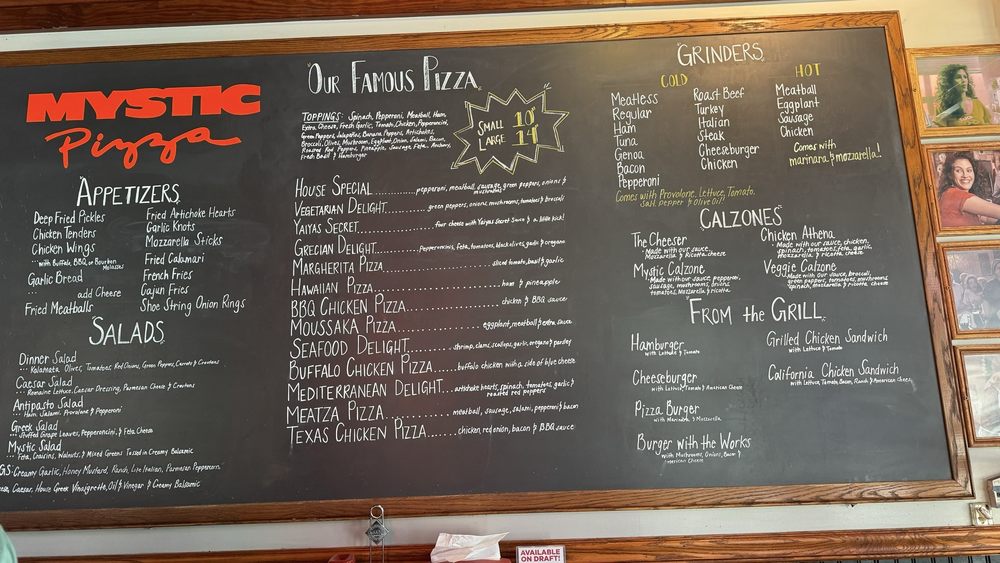 MYSTIC
Pizza
APPETIZERS
Deep Fried Pickles
Chicken Tenders
Chicken Wings
with Buffalo, BBQ, or Bourbon
Molasses
Garlic Bread
add Cheese
Fried Meatballs
Fried Artichoke Hearts
Garlic Knots
Mozzarella Sticks
Fried Calamari
French Fries
Cajun Fries
Shoe String Onion Rings
SALADS
Dinner Salad
Kalamata Olives, Tomatoes, Red Onions, Green Pepper, Carrots & Croutons
Caesar Salad
Romaine Lettuce, Caesar Dressing, Parmesan Cheese & Croutons
Antipasto Salad
Ham, Salami, Provolone & Pepperoni
Greek Salad
Stuffed Grape Leaves, Pepperoncini, & Feta Cheese
Mystic Salad
Feta, Craisins, Walnuts, & Mixed Greens Tossed in Creamy Balsamic
Creamy Garlic, Honey Mustard, Ranch, Lite Italian, Parmesan Peppercorn,
Caesar, House Greek Vinaigrette, Oil & Vinegar & Creamy Balsamic
OUR FAMOUS PIZZA
TOPPINGS: Spinach, Pepperoni, Meatball, Ham,
Extra Cheese, Fresh Garlic, Tomato, Chicken, Pepperoncini,
Green Peppers, Jalapeños, Banana Peppers, Artichokes,
Broccoli, Olives, Mushroom, Eggplant, Onion, Salami, Bacon,
Roasted Red Peppers, Pineapple, Sausage, Feta, Anchovy,
Fresh Basil & Hamburger
SMALL 10"
LARGE 14"
HOUSE SPECIAL............pepperoni, meatball, sausage, green peppers, onions &
mushrooms
VEGETARIAN DELIGHT............green peppers, onions, mushrooms, tomatoes & broccoli
YAIYAS SECRET............four cheese with Yaiyas Secret Sauce & a little kick!
GRECIAN DELIGHT............Pepperoncinis, feta, tomatoes, black olives, garlic & oregano
MARGHERITA PIZZA............sliced tomato, basil & garlic
HAWAIIAN PIZZA............ham & pineapple
BBQ CHICKEN PIZZA............chicken & BBQ sauce
MOUSSAKA PIZZA............eggplant, meatball & extra sauce
SEAFOOD DELIGHT............shrimp, clams, scallops, garlic, oregano & parsley
BUFFALO CHICKEN PIZZA......buffalo chicken with a side of blue cheese
MEDITERRANEAN DELIGHT......artichoke hearts, spinach, tomatoes, garlic &
roasted red peppers
MEATZA PIZZA............meatball, sausage, salami, pepperoni & bacon
TEXAS CHICKEN PIZZA......chicken, red onion, bacon & BBQ sauce
GRINDERS
COLD
Meatless
Regular
Ham
Tuna
Genoa
Bacon
Pepperoni
Roast Beef
Turkey
Italian
Steak
Cheeseburger
Chicken
Comes with Provolone, Lettuce, Tomato,
Salt, Pepper & Olive Oil!
HOT
Meatball
Eggplant
Sausage
Chicken
Comes with
marinara & mozzarella!
CALZONES
The Cheeser
- Made with our sauce,
Mozzarella & Ricotta cheese
Mystic Calzone
- Made with our sauce, pepperoni,
sausage, mushrooms, onions
tomatoes, Mozzarella & ricotta
Chicken Athena
- Made with our sauce, chicken,
spinach, tomatoes, feta, garlic,
Mozzarella & ricotta cheese
Veggie Calzone
- Made with our sauce, broccoli,
green peppers, tomatoes, mushrooms
spinach, mozzarella & ricotta cheese
FROM the GRILL
Hamburger
with Lettuce & Tomato
Cheeseburger
with Lettuce, Tomato & American Cheese
Pizza Burger
with Marinara & Mozzarella
Burger with the Works
with Mushrooms, Onions, Bacon &
American Cheese
Grilled Chicken Sandwich
with Lettuce & Tomato
California Chicken Sandwich
with Lettuce, Tomato, Bacon, Ranch & American Cheese
AVAILABLE
ON DRAFT!